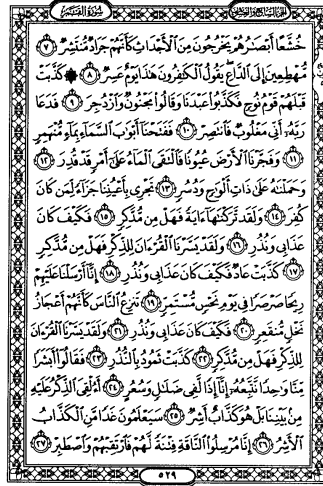 سُورَةُ القَمَرِ الجزء السابع والعشرون
خُشَّعًا أَبْصَـٰرُهُمْ يَخْرُجُونَ مِنَ ٱلْأَجْدَاثِ كَأَنَّهُمْ جَرَادٌ مُّنتَشِرٌ ٧
مُّهْطِعِينَ إِلَى ٱلدَّاعِ يَقُولُ ٱلْكَـٰفِرُونَ هَـٰذَا يَوْمٌ عَسِرٌ ٨ ۞ كَذَّبَتْ
قَبْلَهُمْ قَوْمُ نُوحٍ فَكَذَّبُوا۟ عَبْدَنَا وَقَالُوا۟ مَجْنُونٌ وَٱزْدُجِرَ ٩ فَدَعَا
رَبَّهُۥٓ أَنِّى مَغْلُوبٌ فَٱنتَصِرْ ١٠ فَفَتَحْنَآ أَبْوَٰبَ ٱلسَّمَآءِ بِمَآءٍ مُّنْهَمِرٍ
١١ وَفَجَّرْنَا ٱلْأَرْضَ عُيُونًا فَٱلْتَقَى ٱلْمَآءُ عَلَىٰٓ أَمْرٍ قَدْ قُدِرَ ١٢
وَحَمَلْنَـٰهُ عَلَىٰ ذَاتِ أَلْوَٰحٍ وَدُسُرٍ ١٣ تَجْرِى بِأَعْيُنِنَا جَزَآءً لِّمَن كَانَ
كُفِرَ ١٤ وَلَقَد تَّرَكْنَـٰهَآ ءَايَةً فَهَلْ مِن مُّدَّكِرٍ ١٥ فَكَيْفَ كَانَ
عَذَابِى وَنُذُرِ ١٦ وَلَقَدْ يَسَّرْنَا ٱلْقُرْءَانَ لِلذِّكْرِ فَهَلْ مِن مُّدَّكِرٍ
١٧ كَذَّبَتْ عَادٌ فَكَيْفَ كَانَ عَذَابِى وَنُذُرِ ١٨ إِنَّآ أَرْسَلْنَا عَلَيْهِمْ
رِيحًا صَرْصَرًا فِى يَوْمِ نَحْسٍ مُّسْتَمِرٍّ ١٩ تَنزِعُ ٱلنَّاسَ كَأَنَّهُمْ أَعْجَازُ
نَخْلٍ مُّنقَعِرٍ ٢٠ فَكَيْفَ كَانَ عَذَابِى وَنُذُرِ ٢١ وَلَقَدْ يَسَّرْنَا ٱلْقُرْءَانَ
لِلذِّكْرِ فَهَلْ مِن مُّدَّكِرٍ ٢٢ كَذَّبَتْ ثَمُودُ بِٱلنُّذُرِ ٢٣ فَقَالُوٓا۟ أَبَشَرًا
مِّنَّا وَٰحِدًا نَّتَّبِعُهُۥٓ إِنَّآ إِذًا لَّفِى ضَلَـٰلٍ وَسُعُرٍ ٢٤ أَءُلْقِىَ ٱلذِّكْرُ عَلَيْهِ
مِنۢ بَيْنِنَا بَلْ هُوَ كَذَّابٌ أَشِرٌ ٢٥ سَيَعْلَمُونَ غَدًا مَّنِ ٱلْكَذَّابُ
ٱلْأَشِرُ ٢٦ إِنَّا مُرْسِلُوا۟ ٱلنَّاقَةِ فِتْنَةً لَّهُمْ فَٱرْتَقِبْهُمْ وَٱصْطَبِرْ ٢٧
٥٢٩